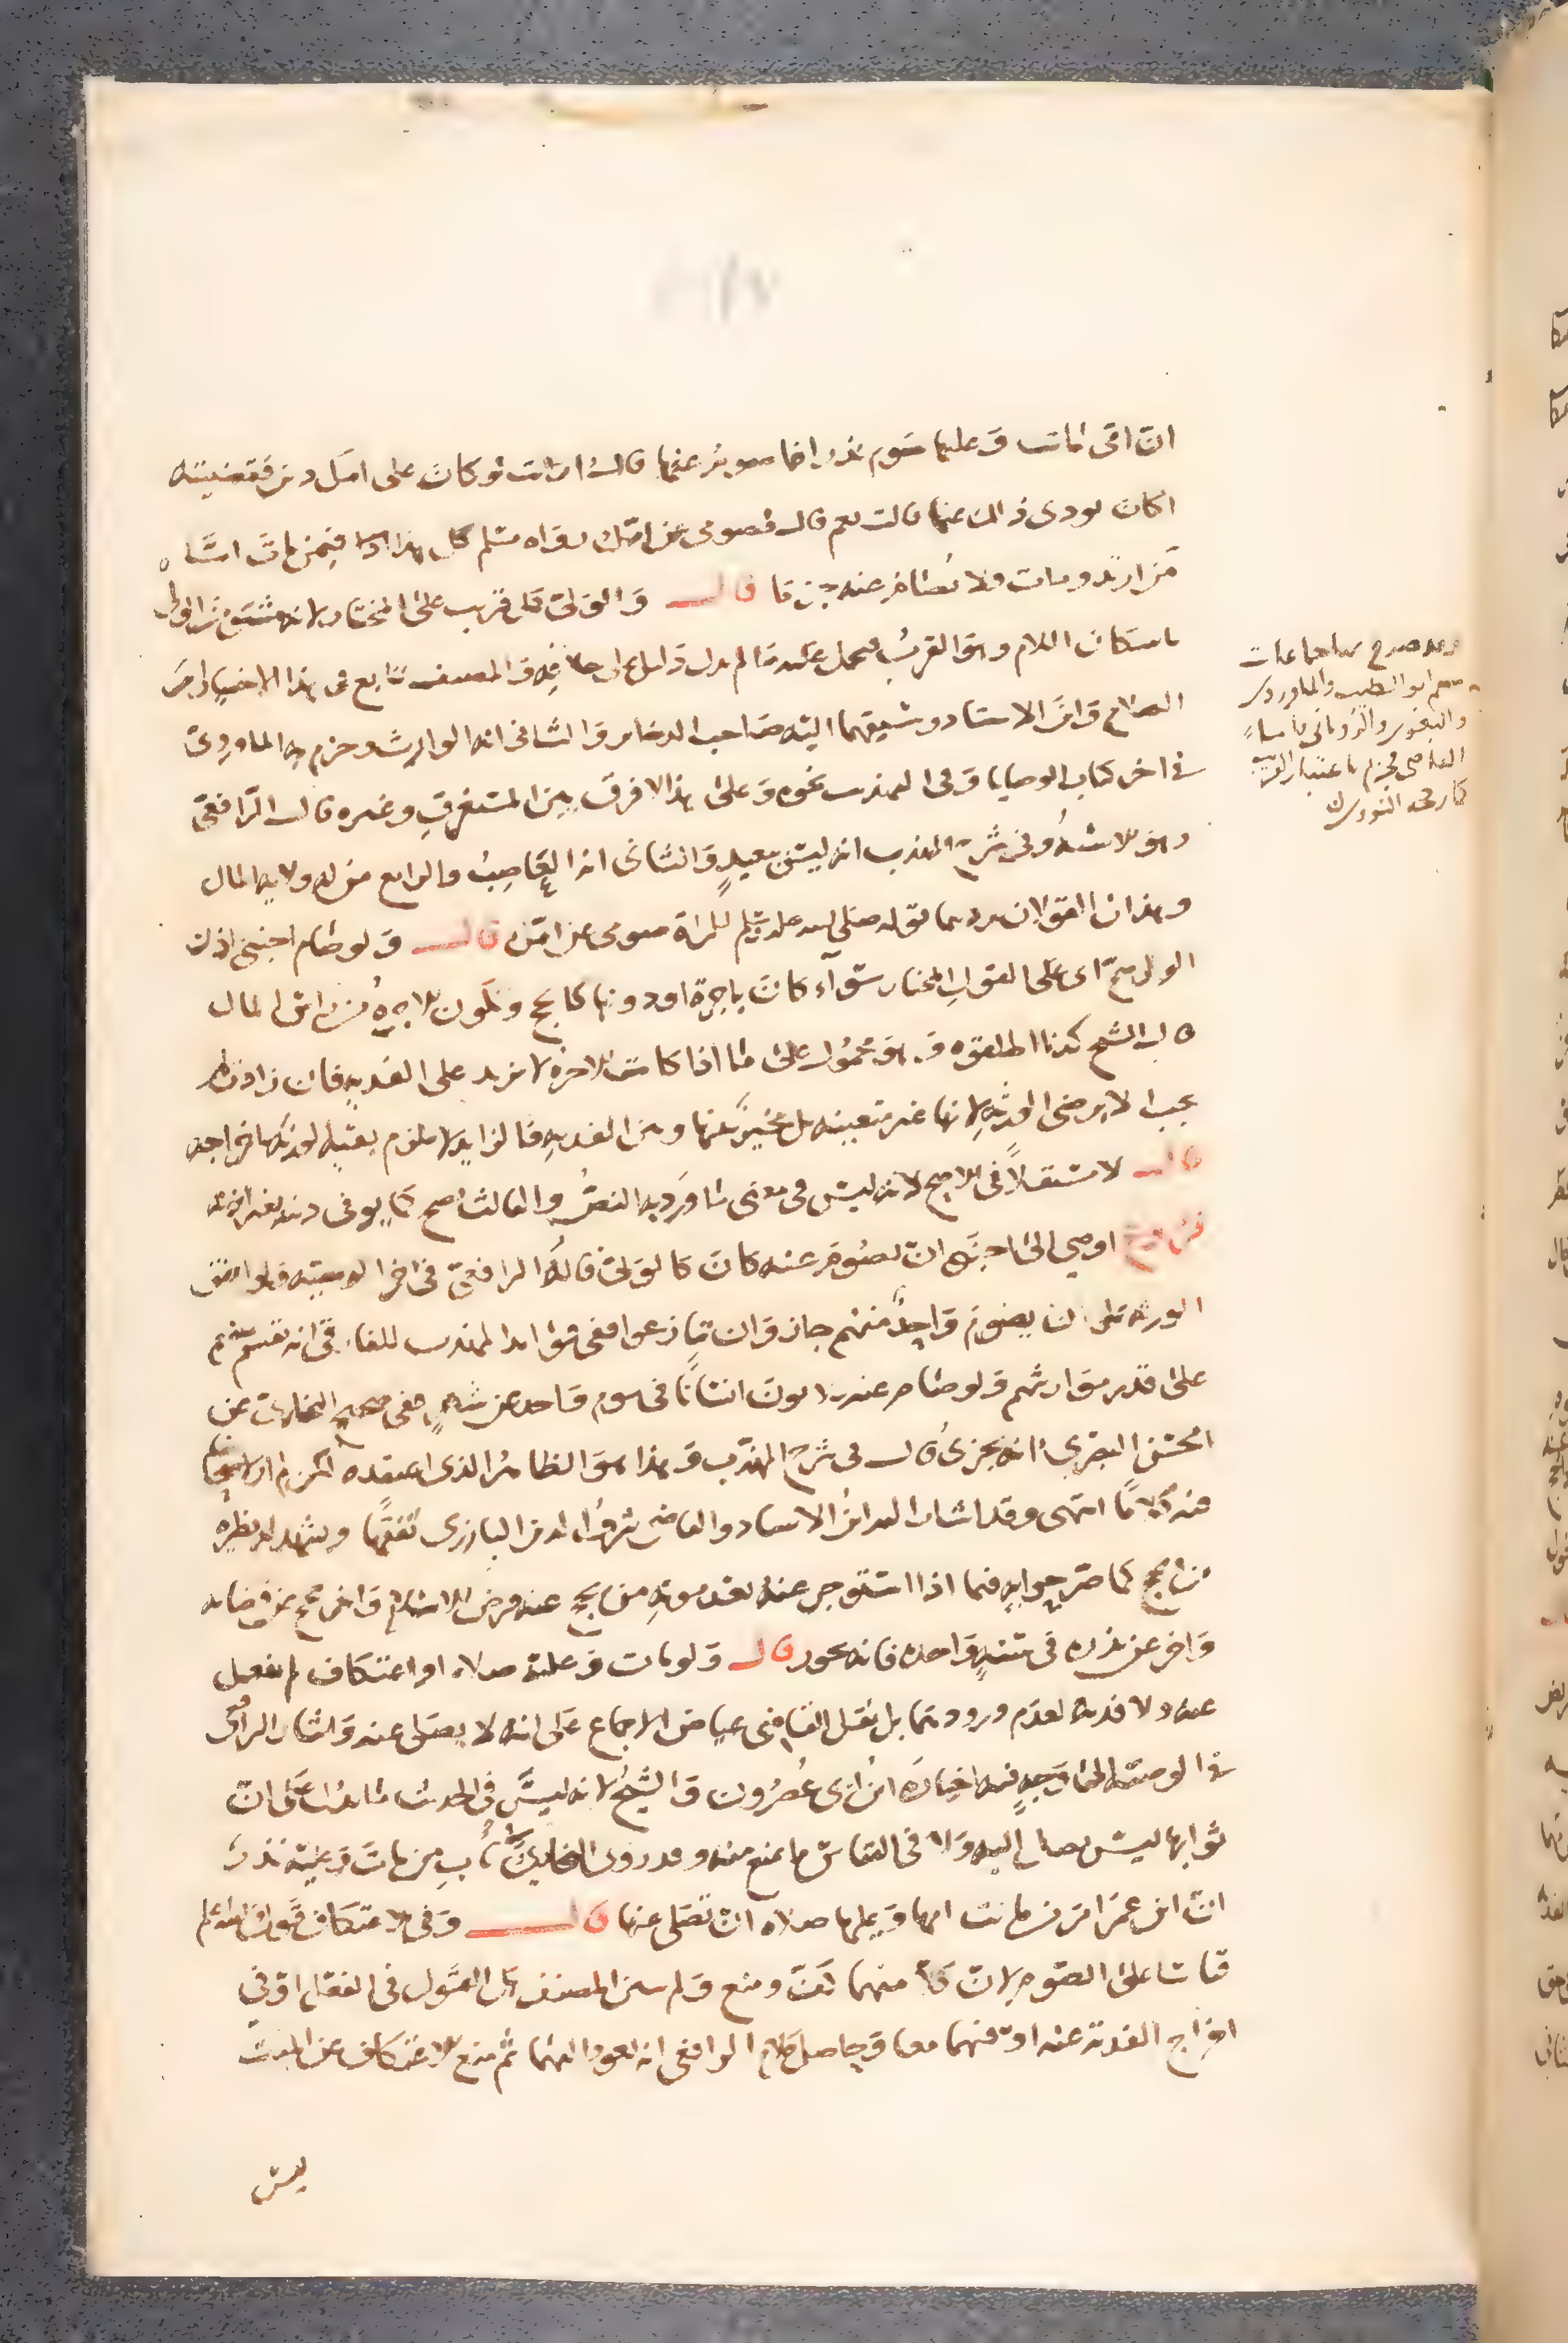 ان امي ماتت وعليها صوم نذر افاصوم عنها قال ارايت لو كان على امك دين فقضيتيه
اكان يودى ذلك عنها قالت نعم قال فصومى عن امك رواه مسلم كل هذا فيمن مات اما
من ارتد ومات فلا يصام عنه جزما قال والولى كل قريب على المختار لانه مشتق من الولى
باسكان اللام وهو القرب فيحمل عليه ما لم يدل دليل على خلافه والمصنف تابع فى هذا الاختيار ابن
الصلاح وابن الاستاد وسبقهما اليه صاحب الدخاير والثانى انه الوارث وجزم به الماوردى
في اخر كتاب الوصايا وفى المهذب نحوه وعلى هذا لا فرق بين المستغرق وغيره قال الرافعى
وهو الاشبه وفى شرح المهذب انه ليس ببعيد والثالث انه العاصب والرابع من له ولاية المال
وهذان القولان يردهما قوله صلى الله عليه وسلم للمراة صومى عن امك قال ولو صام اجنبى باذن
الولى صح اى على القول المختار سواء كان باجرة او دونها كالحج وتكون الاجرة من راس المال
قال الشيخ كذا اطلقوه وهو محمول على ما اذا كانت الاجرة لا تزيد على الفدية فان زادت لم
يجب الا برضى الورثة لانها غير متعينة بل مخير بينها وبين الفدية فالزايد لا يلزم بقية الورثة اخراجه
قال لا مستقلا فى الاصح لانه ليس فى معنى ما ورد به النص والثالث يصح كما يوفى دينه بغير اذنه
فرع اوصى الى اجنبى ان يصوم عنه كان كالولى قاله الرافعى فى اخر الوصية ولو اتفق
الورثة على ان يصوم واحد منهم جاز وان تنازعوا ففى فوايد المهذب للفارقى انه تقسم بينهم
على قدر مواريثهم ولو صام عنه ثلاثون انسانا فى يوم واحد عن شهر ففى صحيح البخارى عن
الحسن البصرى انه يجزى قال فى شرح المهذب وهذا هو الظاهر الذى اعتقده لكن لم ار لاصحابنا
فيه كلاما انتهى وقد اشار اليه ابن الاستاد والقاضى شرف الدين البارزى تفقها ويشهد له نظيره
من الحج كما صرحوا به فيما اذا استوجر عنه بعد موته من يحج عنه فرض الاسلام واخر يحج عن قضايه
واخر عن نذره فى سنة واحدة فانه يجوز قال ولو مات وعليه صلاه او اعتكاف لم يفعل
عنه ولا فدية لعدم ورودهما بل نقل القاضى عياض الاجماع على انه لا يصلى عنه واشار الرافعى
في الوصية الى وجه فيه اختاره ابن ابى عصرون والشيخ لانه ليس فى الحديث ما يدل على ان
ثوابها ليس بواصل اليه ولا فى القياس ما يمنع منه وقد روى البخارى باب من مات وعليه نذر
ان ابن عمر امر من ماتت امها وعليها صلاه ان تصلى عنها قال وفى الاعتكاف قول والله اعلم
قياسا على الصوم لان كلا منهما كف ومنع ولم يبين المصنف هل القول فى الفعل او فى
اخراج الفدية عنه او فيهما معا وحاصل كلام الرافعى انه يعود اليهما ثم منع الاعتكاف عن الميت
ليس
وبه صرح جماعات
منهم ابو الطيب والماوردى
والبغوى والرويانى
القاضى فجزم باعتبار القرب
كما رجحه النووى